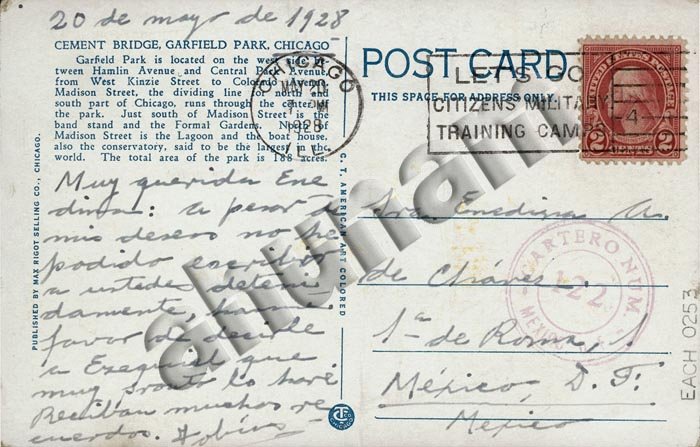 20 de mayo de 1928
CEMENT BRIDGE, GARFIELD PARK, CHICAGO
Garfield Park is located on the west side be-
tween Hamlin Avenue and Central Park Avenue,
from West Kinzie Street to Colorado Avenue.
Madison Street, the dividing line for north and
south part of Chicago, runs through the center of
the park. Just south of Madison Street is the
band stand and the Formal Gardens. North of
Madison Street is the Lagoon and the boat house,
also the conservatory, said to be the largest in the
world. The total area of the park is 188 acres.
Muy querida Ene
dina: a pesar de
mis deseos no he
podido escribir
a ustedes deteni
damente,
favor de decirle
a Ezequiel que
muy pronto lo haré
Reciban muchos re
cuerdos.
PUBLISHED BY MAX RIGOT SELLING CO., CHICAGO.
C. T. AMERICAN ART COLORED
POST CARD
THIS SPACE FOR ADDRESS ONLY
CHICAGO
MAY 20
PM
1928
ILL.
LET'S GO
CITIZENS MILITARY
TRAINING CAMPS
4
UNITED STATES POSTAGE
2 CENTS 2
Sra. Enedina A.
de Chávez.
1a de Roma, 1
México, D. F.
Mexico
CARTERO NUM.
122
MEXICO
ahunam
EACH_0253